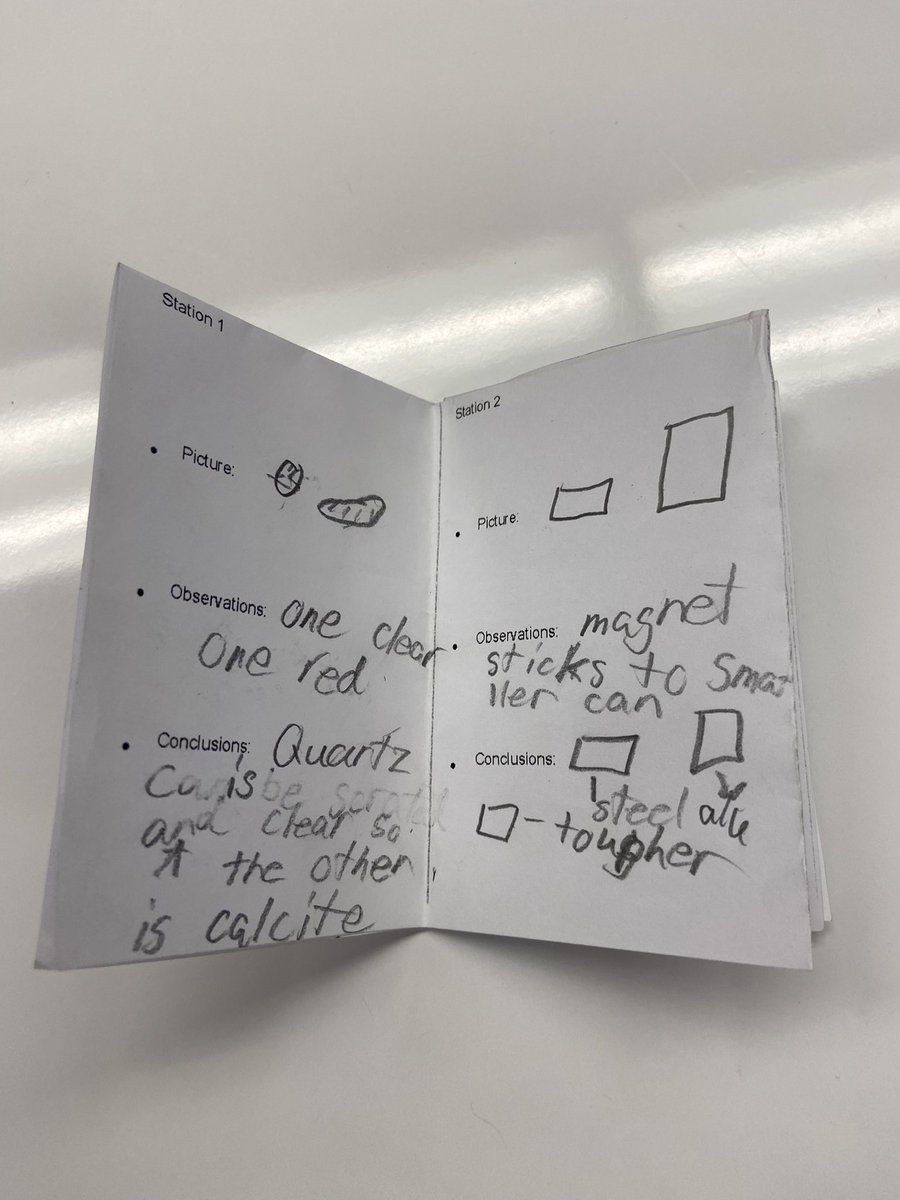 Station 1
Picture:
Observations: One clear
One red
Conclusions: Quartz
is
and clear so
the other
is calcite
Station 2
Picture:
Observations: magnet
sticks to Sma
ller can
Conclusions:
steel
- tougher